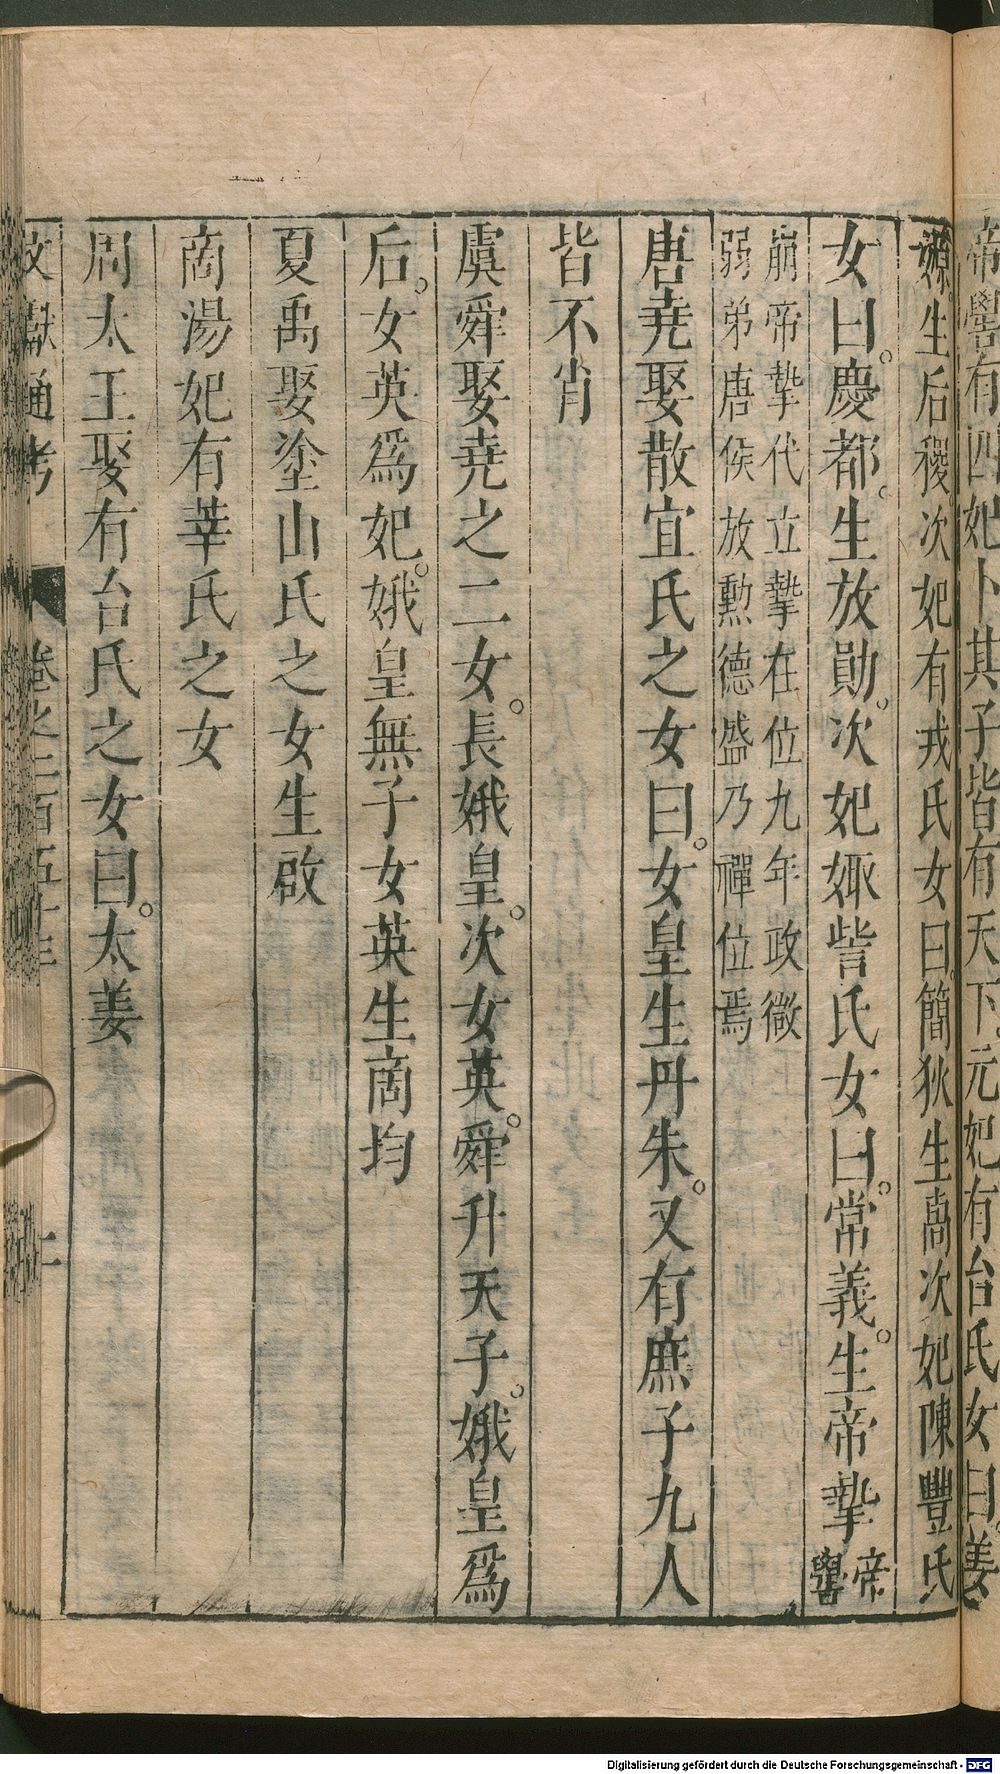 帝嚳有四妃卜其子皆有天下元妃有台氏女曰姜
嫄。生后稷次妃有戎氏女曰。簡狄生卨次妃陳豐氏
女曰。慶都。生放勛。次妃娵訾氏女曰。常義。生帝摯帝嚳
崩帝摯代立摯在位九年政微
弱弟唐侯放勲德盛乃禪位焉
唐堯娶散宜氏之女曰。女皇生丹朱。又有庶子九人
皆不肖
虞舜娶堯之二女。長娥皇。次女英。舜升天子。娥皇爲
后。女英爲妃。娥皇無子女英生商均
夏禹娶塗山氏之女生啟
商湯妃有莘氏之女
周太王娶有台氏之女曰。太姜
文獻通考 卷之二百五十三 上
Digitalisierung gefördert durch die Deutsche Forschungsgemeinschaft - DFG